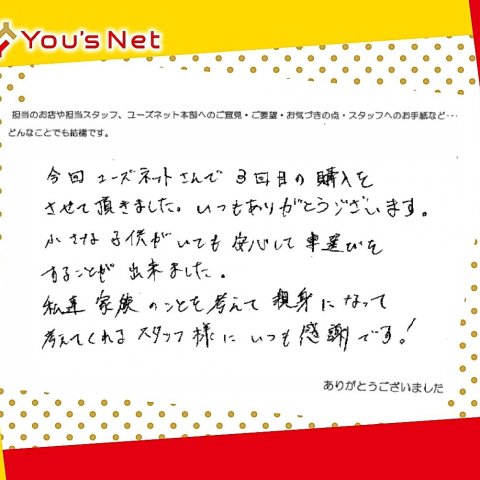 You's Net
担当のお店や担当スタッフ、ユーズネット本部へのご意見・ご要望・お気づきの点・スタッフへのお手紙など…
どんなことでも結構です。
今回ユーズネットさんで3回目の購入を
させて頂きました。いつもありがとうございます。
小さな子供がいても安心して車選びを
することが出来ました。
私達家族のことを考えて親身になって
考えてくれるスタッフ様にいつも感謝です!
ありがとうございました